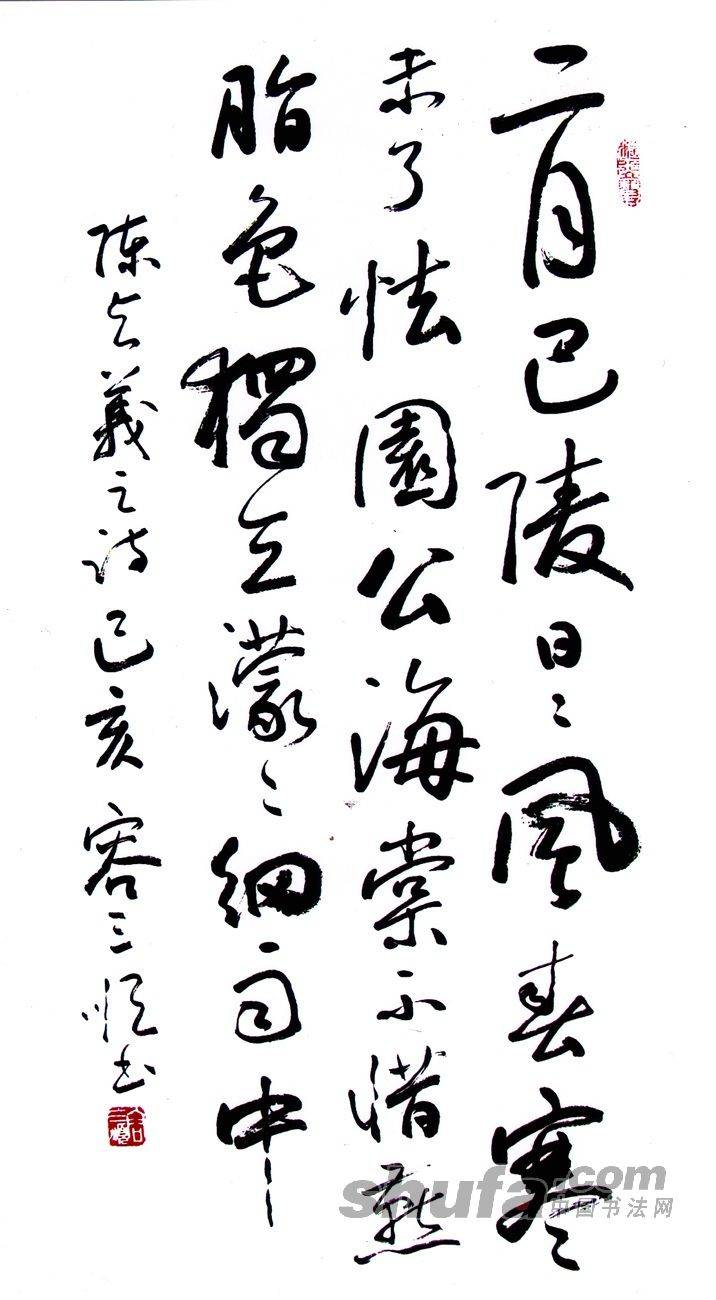 二月巴陵日〻風春寒
未了怯園公海棠不惜燕
脂色獨立濛〻細雨中
陳与義之詩己亥容三順书
shufa.com
中国书法网